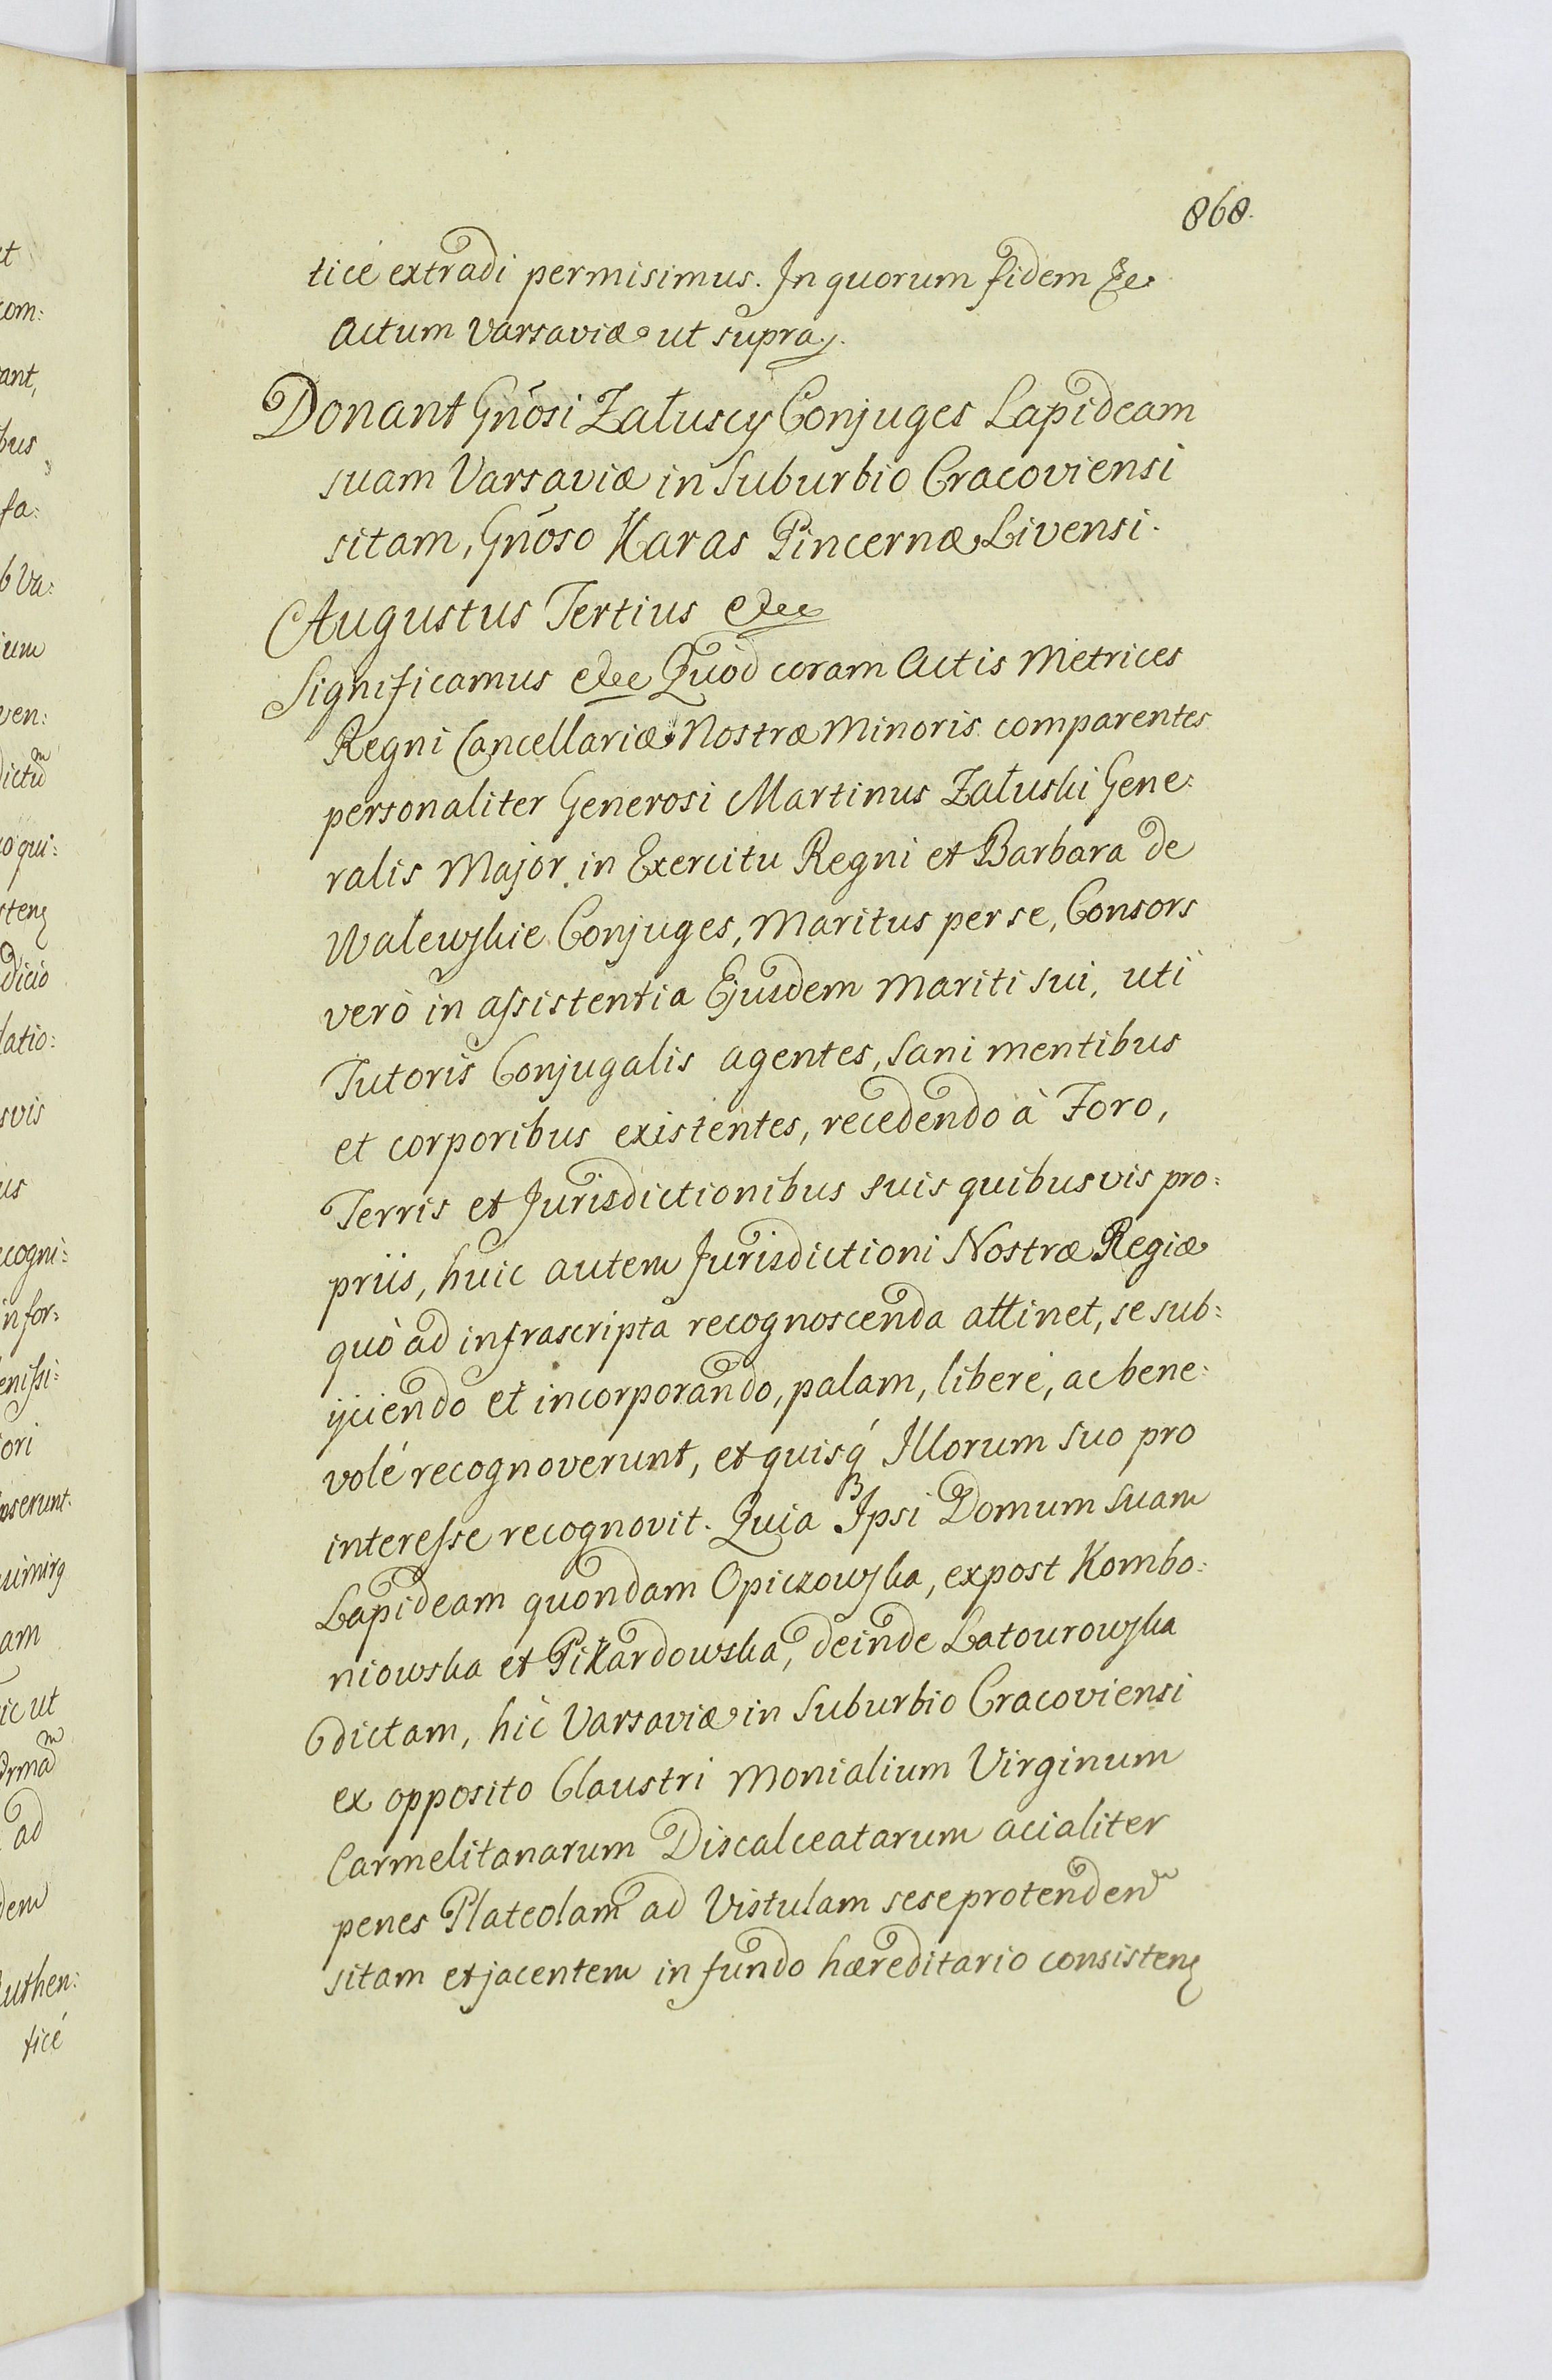 868.
ticé extradi permisimus. In quorum fidem &c
Actum Varsaviæ ut supra.
Donant Gnõsi Załuscy Conjuges Lapideam
suam Varsaviæ in Suburbio Cracoviensi
sitam, Gnõso Karas Pincernæ Livensi.
Augustus Tertius etc
Significamus etc Quod coram Actis Metrices
Regni Cancellariæ Nostræ Minoris comparentes
personaliter Generosi Martinus Załuski Gene:
ralis Major in Exercitu Regni et Barbara de
Walewskie Conjuges, Maritus per se, Consors
verò in assistentia Ejusdem Mariti sui, uti
Tutoris Conjugalis agentes, sani mentibus
et corporibus existentes, recedendo à Foro,
Terris et Jurisdictionibus suis quibusvis pro:
priis, huic autem Jurisdictioni Nostræ Regiæ
quò ad infrascripta recognoscenda attinet, se sub:
ijciendo et incorporando, palam, liberé, ac bene:
volé recognoverunt, et quisq́ Illorum suo pro
interesse recognovit. Quia Ipsi Domum suam
Lapideam quondam Opiczowska, expost Kombo:
niowska et Pikardowska, deinde Latourowska
dictam, hic Varsaviæ in Suburbio Cracoviensi
ex opposito Claustri Monialium Virginum
Carmelitanarum Discalceatarum acialiter
penes Plateolam ad Vistulam sese protenden͠
sitam et jacentem in fundo hæreditario consisten
et
com:
ant,
bus
fa:
b Va:
ium
ven:
dictũ
o qui:
sten
dicio
latio:
svis
us
ecogni:
in for:
enissi:
tori
serunt.
am
ic ut
ad
dem
Authen:
ticé